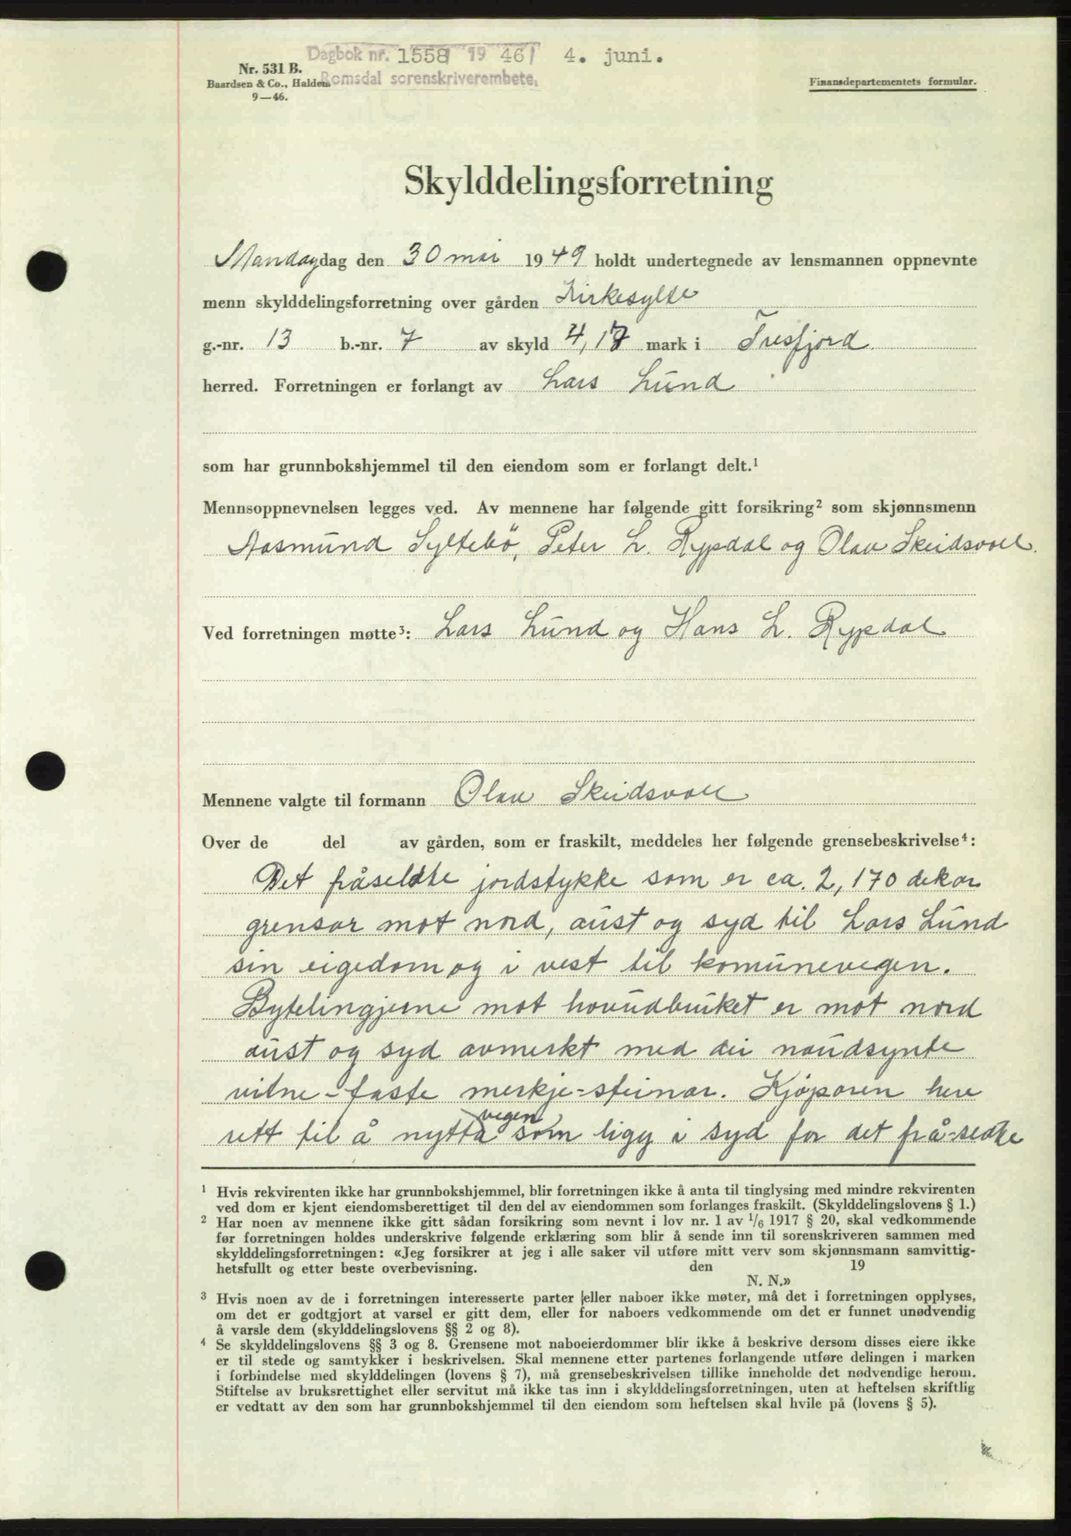 Dagbok nr. 1558 19 46 4. juni.
Romsdal sorenskriverembete.
Nr. 531 B.
Baardsen & Co., Halden
9—46.
Finansdepartementets formular.
Skylddelingsforretning
Mandag dag den 30 mai 1949 holdt undertegnede av lensmannen oppnevnte
menn skylddelingsforretning over gården Kirkesylte
g.-nr. 13 b.-nr. 7 av skyld 4,17 mark i Tresfjord
herred. Forretningen er forlangt av Lars Lund
som har grunnbokshjemmel til den eiendom som er forlangt delt.¹
Mennsoppnevnelsen legges ved. Av mennene har følgende gitt forsikring² som skjønnsmenn
Aasmund Syltebö, Peter L. Rypdal og Olav Skeidsvoll.
Ved forretningen møtte³: Lars Lund og Hans L. Rypdal
Mennene valgte til formann Olav Skeidsvoll
Over de del av gården, som er fraskilt, meddeles her følgende grensebeskrivelse⁴:
Det fråseldte jordstykke som er ca. 2,170 dekar
grensar mot nord, aust og syd til Lars Lund
sin eigedom og i vest til komunevegen.
Bytelingjene mot hovudbruket er mot nord
aust og syd avmerkt med dei naudsynte
vitne-faste merkje-steinar. Kjøparen heve
rett til å nytta vegen som ligg i syd for det frå-seldte
¹ Hvis rekvirenten ikke har grunnbokshjemmel, blir forretningen ikke å anta til tinglysing med mindre rekvirenten
ved dom er kjent eiendomsberettiget til den del av eiendommen som forlanges fraskilt. (Skylddelingslovens § 1.)
² Har noen av mennene ikke gitt sådan forsikring som nevnt i lov nr. 1 av 1/6 1917 § 20, skal vedkommende
før forretningen holdes underskrive følgende erklæring som blir å sende inn til sorenskriveren sammen med
skylddelingsforretningen: «Jeg forsikrer at jeg i alle saker vil utføre mitt verv som skjønnsmann samvittig-
hetsfullt og etter beste overbevisning. den 19
N. N.»
³ Hvis noen av de i forretningen interesserte parter eller naboer ikke møter, må det i forretningen opplyses,
om det er godtgjort at varsel er gitt dem, eller for naboers vedkommende om det er funnet unødvendig
å varsle dem (skylddelingslovens §§ 2 og 8).
⁴ Se skylddelingslovens §§ 3 og 8. Grensene mot naboeierdommer blir ikke å beskrive dersom disses eiere ikke
er til stede og samtykker i beskrivelsen. Skal mennene etter partenes forlangende utføre delingen i marken
i forbindelse med skylddelingen (lovens § 7), må grensebeskrivelsen tillike inneholde det nødvendige herom.
Stiftelse av bruksrettighet eller servitut må ikke tas inn i skylddelingsforretningen, uten at heftelsen skriftlig
er vedtatt av den som har grunnbokshjemmel til den eiendom som heftelsen skal hvile på (lovens § 5).